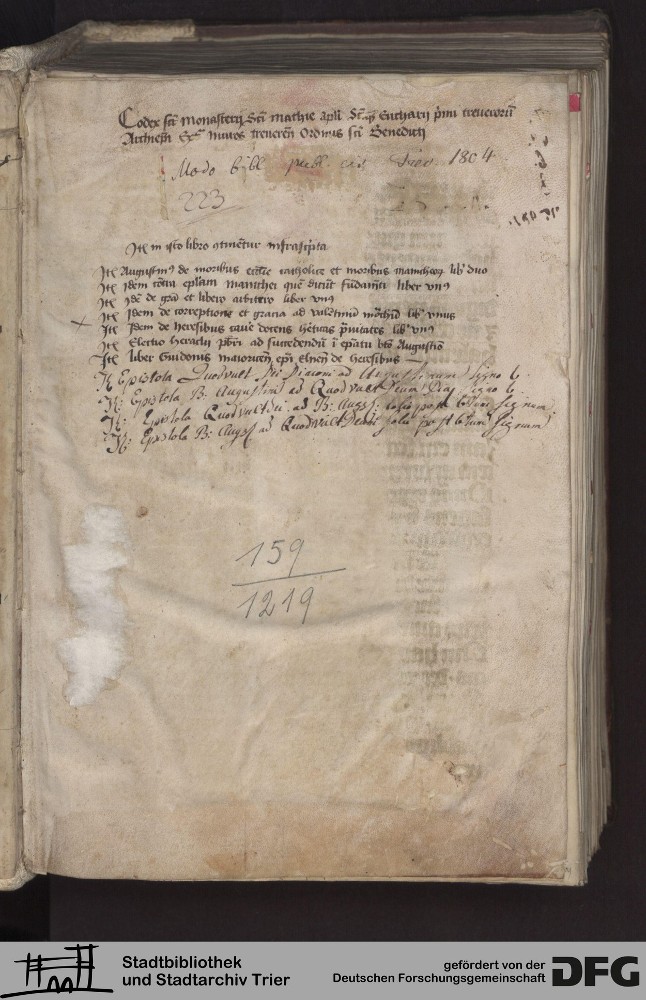 Codex sci monasterij Sci Mathie apli Sciqz Eucharij primi treuerorum
Archiepi Extra muros treueren Ordinis sci Benedicti
Modo bibl. publ. civ. Trev. 1804
223
Ite in isto libro continentur infrascripta
Ite Augustinus de moribus ecclie catholice et moribus manicheorum libri duo
Ite Idem contra epistolam manichei quam dicunt fundamenti liber unus
Ite Idem de gratia et libero arbitrio liber unus
Ite Idem de correptione et gracia ad valentinum liber unus
Ite Idem de heresibus liber unus
Ite Electio Heraclij
Ite liber Guidonis maioricensis epi Elnen de Heresibus
It Epistola Quodvult Dei Diaconi ad Augustinum signo b
It: Epistola B. Augustini ad Quodvult Deum Diac signo b.
It: Epistola Quodvultdei ad B: Augst: folio post signum
It: Epistola B: Augst ad Quodvultdeum folio post signum
159
1219
Stadtbibliothek
und Stadtarchiv Trier
gefördert von der
Deutschen Forschungsgemeinschaft
DFG